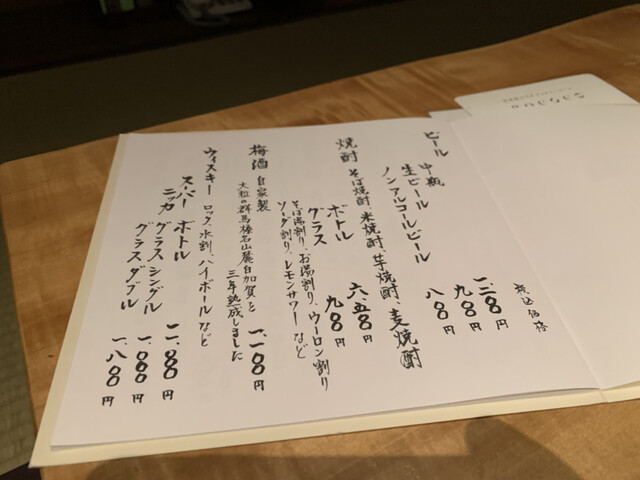 税込価格
ビール
中瓶 一、二〇〇円
生ビール 九〇〇円
ノンアルコールビール 八〇〇円
焼酎 そば焼酎、米焼酎、芋焼酎、麦焼酎
ボトル 六、五〇〇円
グラス 九〇〇円
そば湯割り、お湯割り、ウーロン割り
ソーダ割り、レモンサワー など
梅酒 自家製 一、一〇〇円
大粒の群馬榛名山麓白加賀を
三年熟成しました
ウィスキー ロック、水割、ハイボール など
スーパーニッカ ボトル
グラスシングル 一、〇〇〇円
グラスダブル 一、八〇〇円